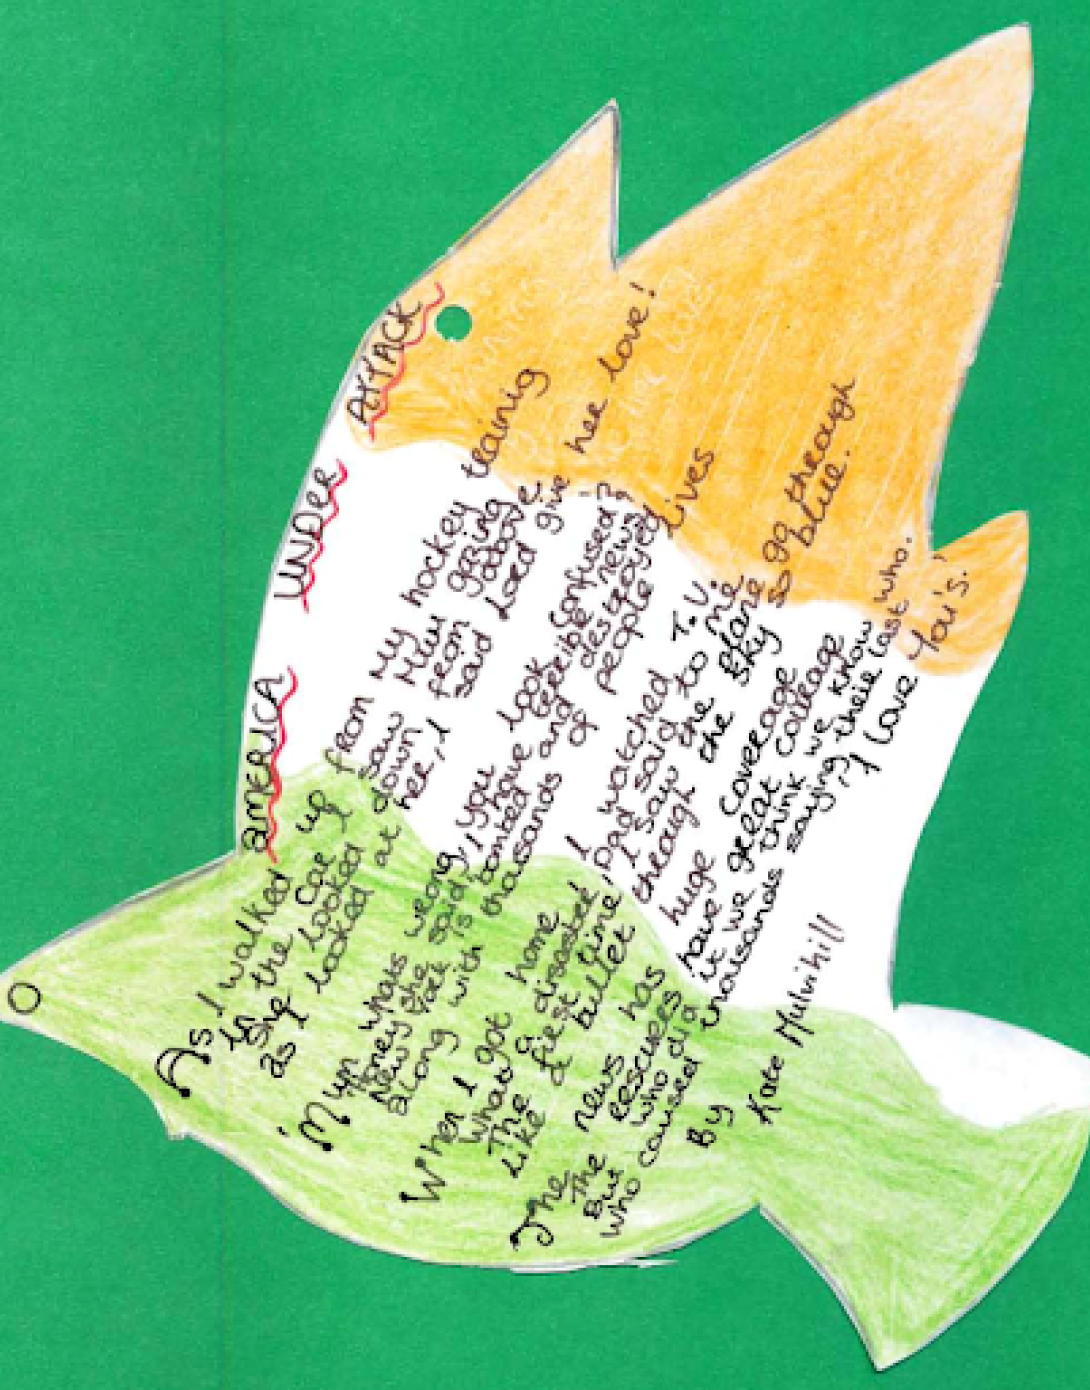 AMERICA UNDER ATTACK
As I walked up from my hockey trainig
In the car I saw Mum gazing
She looked down from above
as I looked at her, I said Lord give her love!
'Mum whats wrong, you look confused?
Honey she said, I have terrible news,
New York is bombed and destroyed
along with thousands of people lives
When I got home I watched T.V.
What a disaster, Dad said to me
The first time I saw the plane go through
Like a bullet through the sky so blue.
The news has huge coverage
The rescuers have great courage
But who did it we think we know who.
Who caused thousands saying their last
'I love you's.'
By
Kate Mulvihill